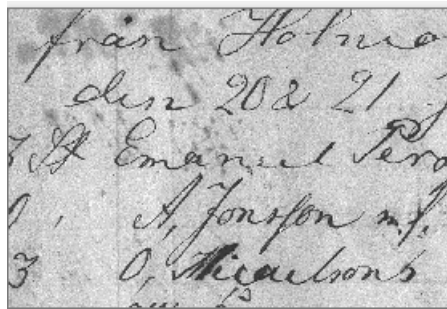 från Holmö
den 20 & 21
3 St Emanuel Pers
A, Jonsson m.f.
3 O, Micaelsons